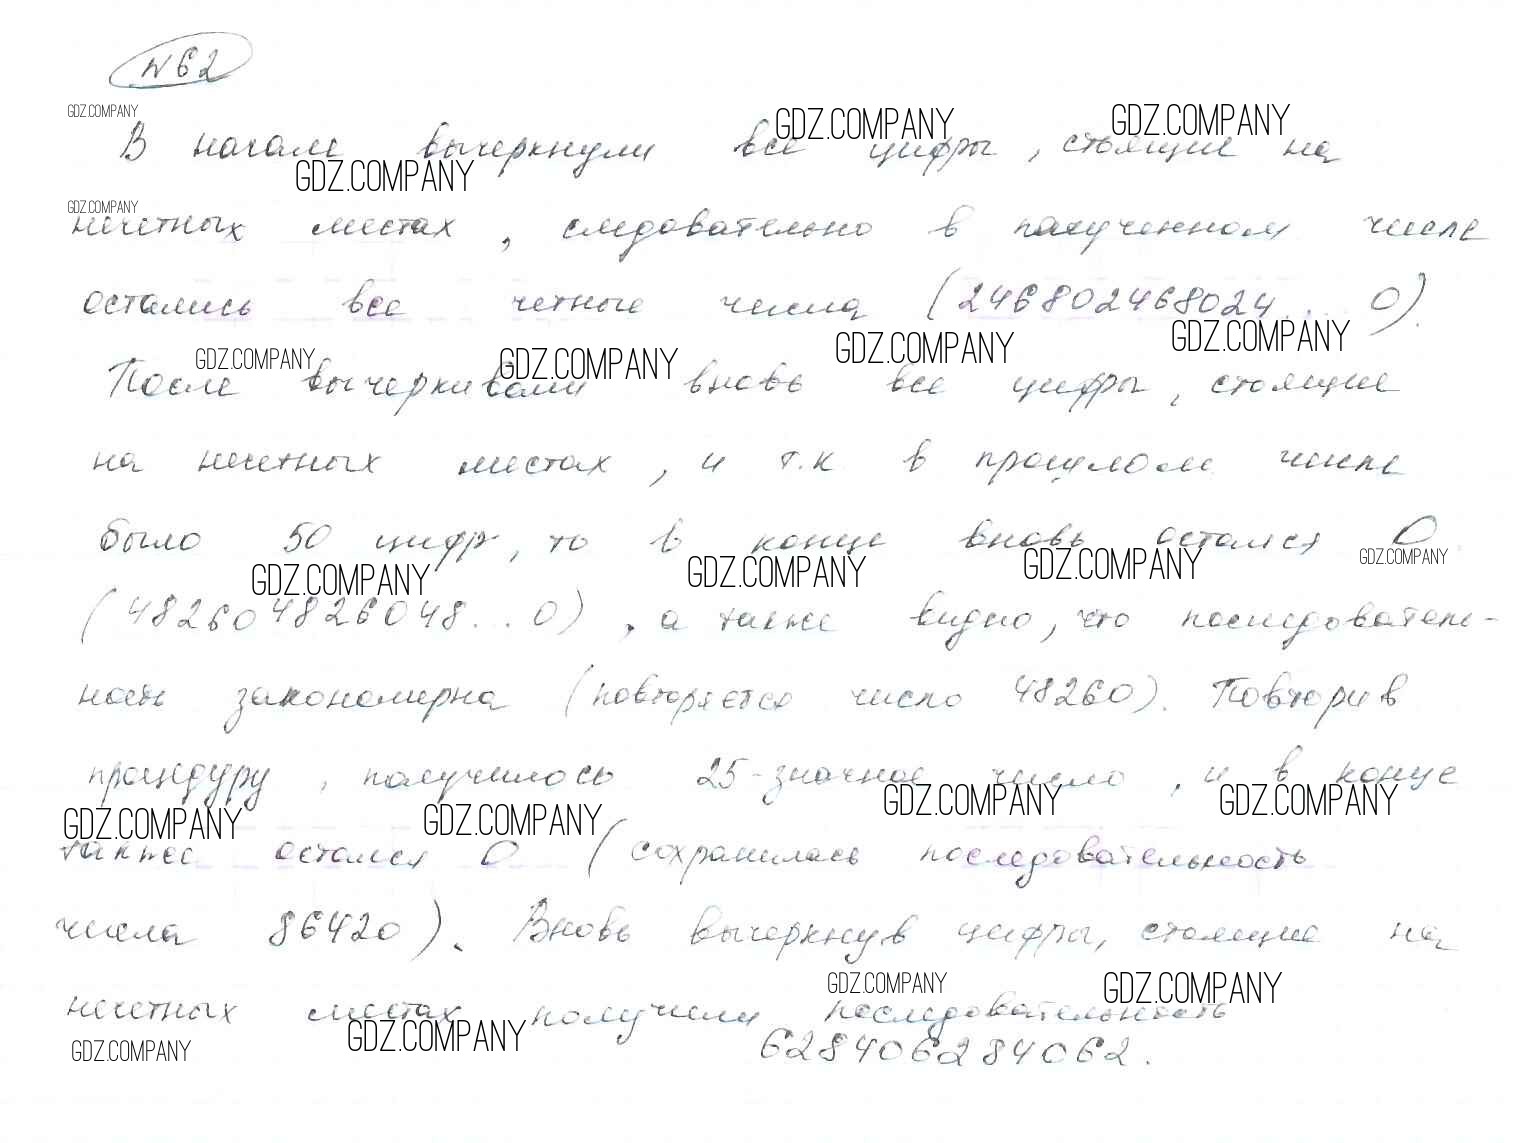 N 62
GDZ.COMPANY
В начале вычеркнули все цифры, стоящие на
GDZ.COMPANY GDZ.COMPANY GDZ.COMPANY
GDZ.COMPANY
нечетных местах, следовательно в полученном числе
остались все четные числа (246802468024... 0).
GDZ.COMPANY GDZ.COMPANY GDZ.COMPANY GDZ.COMPANY
После вычеркивали вновь все цифры, стоящие
на нечетных местах, и т.к в прошлом числе
было 50 цифр, то в конце вновь остался 0
GDZ.COMPANY GDZ.COMPANY GDZ.COMPANY GDZ.COMPANY
(482604826048...0), а также видно, что последователь-
ность закономерна (повторяется число 48260). Повторив
процедуру, получилось 25-значное число, и в конце
GDZ.COMPANY GDZ.COMPANY GDZ.COMPANY GDZ.COMPANY
также остался 0 (сохранилась последовательность
числа 86420). Вновь вычеркнув цифры, стоящие на
GDZ.COMPANY GDZ.COMPANY
нечетных местах получили последовательность
GDZ.COMPANY GDZ.COMPANY
628406284062.